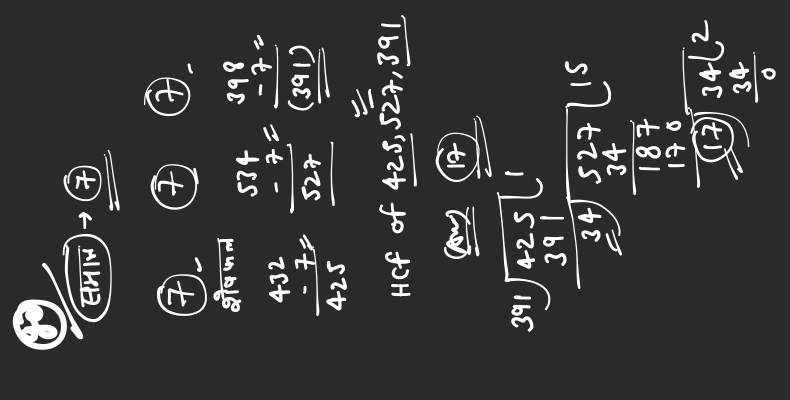 समान → 7
7 7 7
शेषफल
432 534 398
- 7 = - 7 = - 7 =
425 527 (391)
HCF of 425, 527, 391
(Ans) 17
391) 425 (1
391
34) 527 (15
34
187
170
17) 34 (2
34
0